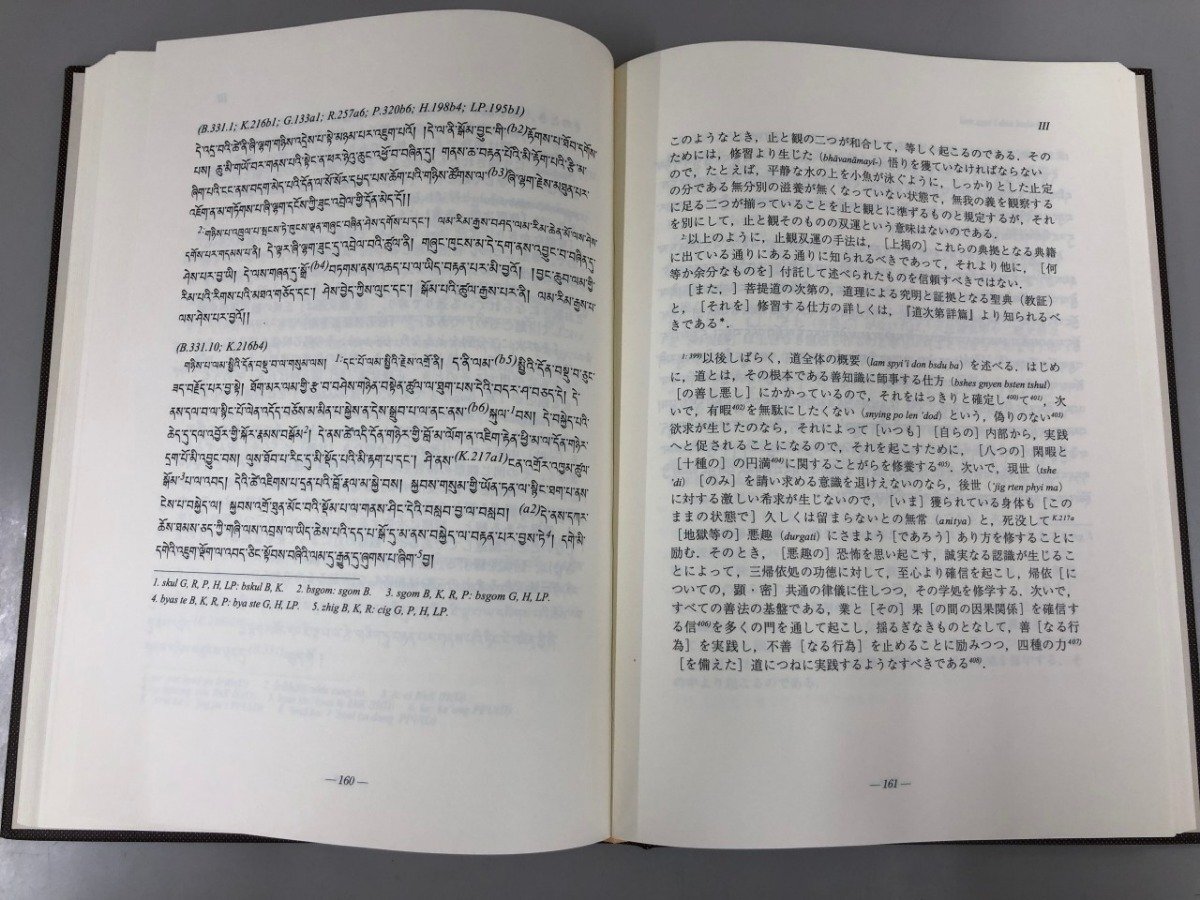 (B.331.1; K.216b1; G.133a1; R.257a6; P.320b6; H.198b4; LP.195b1)
དེ་འདྲ་བའི་ཚེ་ནི་ཞི་ལྷག་གཉིས་འདྲེས་པ་སྟེ་མཉམ་པར་འཇུག་པའོ། །དེ་ལ་ནི་སྒོམ་བྱུང་གི་(b2)རྟོགས་པ་ཐོབ་དགོས་
པས། ཆུ་མི་གཡོ་བར་གནས་པའི་སྟེང་ན་ཕར་ཉེའུ་ཆུང་འཕྱོ་བ་བཞིན་དུ། གནས་ཆ་བརྟན་པོའི་མི་རྟོག་པའི་རྩི་མ་
ཞིག་པའི་ངང་ནས་བདག་མེད་པའི་དོན་ལ་སོ་སོར་དཔྱད་པས་ཆོག་པའི་གཉིས་ཚོགས་ལ་(b3)ཞི་ལྷག་རྗེས་མཐུན་པར་
འཇོག་ན་མ་གཏོགས་པ་ཞི་ལྷག་དངོས་ཀྱི་ཟུང་འབྲེལ་གྱི་དོན་མེད་དོ།།
དགོས་པར་གདམས་པ་ནི། དེ་ལྟར་ཞི་ལྷག་ཟུང་དུ་འབྲེལ་བའི་ཚུལ་ནི། གཞུང་ཁུངས་མ་དེ་དག་ནས་འབྱུང་བ་བཞིན་དུ་
ཤེས་པར་བྱ་ཡི། དེ་ལས་གཞན་དུ་སྒྲོ་(b4)བཏགས་ནས་འཆད་པ་ལ་ཡིད་བརྟན་པར་མི་བྱའོ། །བྱང་ཆུབ་ལམ་གྱི་
རིམ་པའི་རིགས་པའི་མཐའ་གཅོད་དང་། ཤེས་བྱེད་ཀྱི་ལུང་དང་། སྒོམ་པའི་ཚུལ་རྒྱས་པར་ནི། ལམ་རིམ་རྒྱས་པ་
ལས་ཤེས་པར་བྱའོ།།
(B.331.10; K.216b4)
གཉིས་པ་ལམ་སྤྱིའི་དོན་བསྡུ་བ་ལ་གསུམ་ལས། ¹·དང་པོ་ལམ་སྤྱིའི་རྗེས་འགྲོ་ནི། ད་ནི་ལམ་(b5)སྤྱིའི་དོན་བསྡུ་བ་ཅུང་
ཟད་བརྗོད་པར་བྱ་སྟེ། ཐོག་མར་ལམ་གྱི་རྩ་བ་བཤེས་གཉེན་བསྟེན་ཚུལ་ལ་ཐུག་པས་དེའི་བདར་ཤ་བཅད་དེ། དེ་
ནས་དལ་བ་ལ་སྙིང་པོ་ལེན་འདོད་བཅོས་མ་མིན་པ་སྐྱེས་ན་དེས་སྒྲུབ་པ་ལ་ནང་ནས་(b6)སྐུལ་¹བས། དེ་བསྐྱེད་པའི་
ཆེད་དུ་དལ་འབྱོར་གྱི་སྐོར་རྣམས་བསྒོམ²། དེ་ནས་ཚེ་འདི་དོན་གཉེར་གྱི་བློ་མ་ལོག་ན་འཇིག་རྟེན་ཕྱི་མ་ལ་དོན་གཉེར་
དྲག་པོ་མི་འབྱུང་བས། ལུས་ཐོབ་པ་རིང་དུ་མི་སྡོད་པའི་མི་རྟག་པ་དང་། ཤི་ནས་(K.217a1)ངན་འགྲོར་འཁྱམ་ཚུལ་
སྒོམ་³པ་ལ་འབད། དེའི་ཚེ་འཇིགས་པ་དྲན་པའི་བློ་རྣལ་མ་སྐྱེ་བས། སྐྱབས་གསུམ་གྱི་ཡོན་ཏན་ལ་སྙིང་ཐག་པ་ནས་
ངེས་པ་བསྐྱེད་ལ། སྐྱབས་འགྲོ་ཐུན་མོང་བའི་སྡོམ་པ་ལ་གནས་ཤིང་དེའི་བསླབ་བྱ་ལ་བསླབ། (a2)དེ་ནས་དཀར་
ཆོས་ཐམས་ཅད་ཀྱི་གཞི་ལས་འབྲས་ལ་ཡིད་ཆེས་པའི་དད་པ་སྒོ་དུ་མ་ནས་བསྐྱེད་ལ་བརྟན་པར་བྱས་ཏེ⁴། དགེ་མི་
དགེའི་འཇུག་ལྡོག་ལ་འབད་ཅིང་སྟོབས་བཞིའི་ལམ་དུ་རྒྱུན་དུ་ཞུགས་པ་ཞིག་⁵བྱ།
1. skul G, R, P, H, LP: bskul B, K. 2. bsgom: sgom B. 3. sgom B, K, R, P: bsgom G, H, LP.
4. byas te B, K, R, P: bya ste G, H, LP. 5. zhig B, K, R: cig G, P, H, LP.
—160—
III
このようなとき，止と観の二つが和合して，等しく起こるのである．その
ためには，修習より生じた（bhāvanāmayī-）悟りを獲ていなければならない
ので，たとえば，平静な水の上を小魚が泳ぐように，しっかりとした止定
の分である無分別の滋養が無くなっていない状態で，無我の義を観察する
に足る二つが揃っていることを止と観とに準ずるものと規定するが，それ
を別にして，止と観そのものの双運という意味はないのである．
²·以上のように，止観双運の手法は，［上掲の］これらの典拠となる典籍
に出ている通りにある通りに知られるべきであって，それより他に，［何
等か余分なものを］付託して述べられたものを信頼すべきではない．
［また，］菩提道の次第の，道理による究明と証拠となる聖典（教証）
と，［それを］修習する仕方の詳しくは，『道次第詳篇』より知られるべ
きである*．
¹·³⁹⁹⁾以後しばらく，道全体の概要（lam spyi'i don bsdu ba）を述べる．はじめ
に，道とは，その根本である善知識に師事する仕方（bshes gnyen bsten tshul）
［の善し悪し］にかかっているので，それをはっきりと確定し⁴⁰⁰⁾て⁴⁰¹⁾，次
いで，有暇⁴⁰²⁾を無駄にしたくない（snying po len 'dod）という，偽りのない⁴⁰³⁾
欲求が生じたのなら，それによって［いつも］［自らの］内部から，実践
へと促されることになるので，それを起こすために，［八つの］閑暇と
［十種の］の円満⁴⁰⁴⁾に関することがらを修養する⁴⁰⁵⁾．次いで，現世（tshe
'di）［のみ］を請い求める意識を退けえないのなら，後世（'jig rten phyi ma）
に対する激しい希求が生じないので，［いま］獲られている身体も［この
ままの状態で］久しくは留まらないとの無常（anitya）と，死没してK.217a
［地獄等の］悪趣（durgati）にさまよう［であろう］あり方を修することに
励む．そのとき，［悪趣の］恐怖を思い起こす，誠実なる認識が生じるこ
とによって，三帰依処の功徳に対して，至心より確信を起こし，帰依［に
ついての，顕・密］共通の律儀に住しつつ，その学処を修学する．次いで，
すべての善法の基盤である，業と［その］果［の間の因果関係］を確信す
る信⁴⁰⁶⁾を多くの門を通して起こし，揺るぎなきものとなして，善［なる行
為］を実践し，不善［なる行為］を止めることに励みつつ，四種の力⁴⁰⁷⁾
［を備えた］道につねに実践するようなすべきである⁴⁰⁸⁾．
—161—